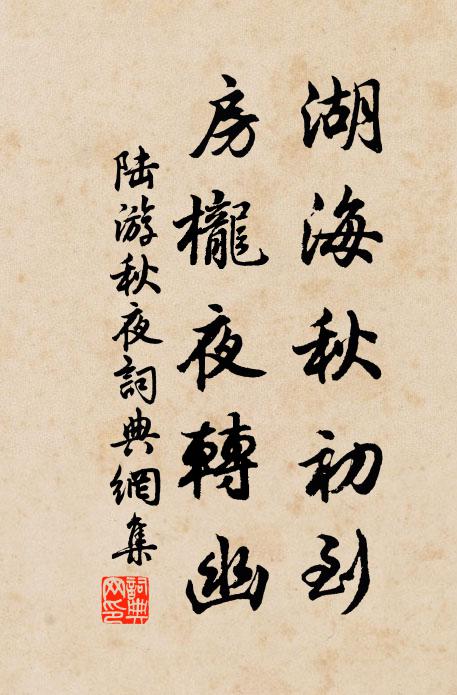 湖海秋初到
房櫳夜轉幽
陸游秋夜詞典網集
詞典網印